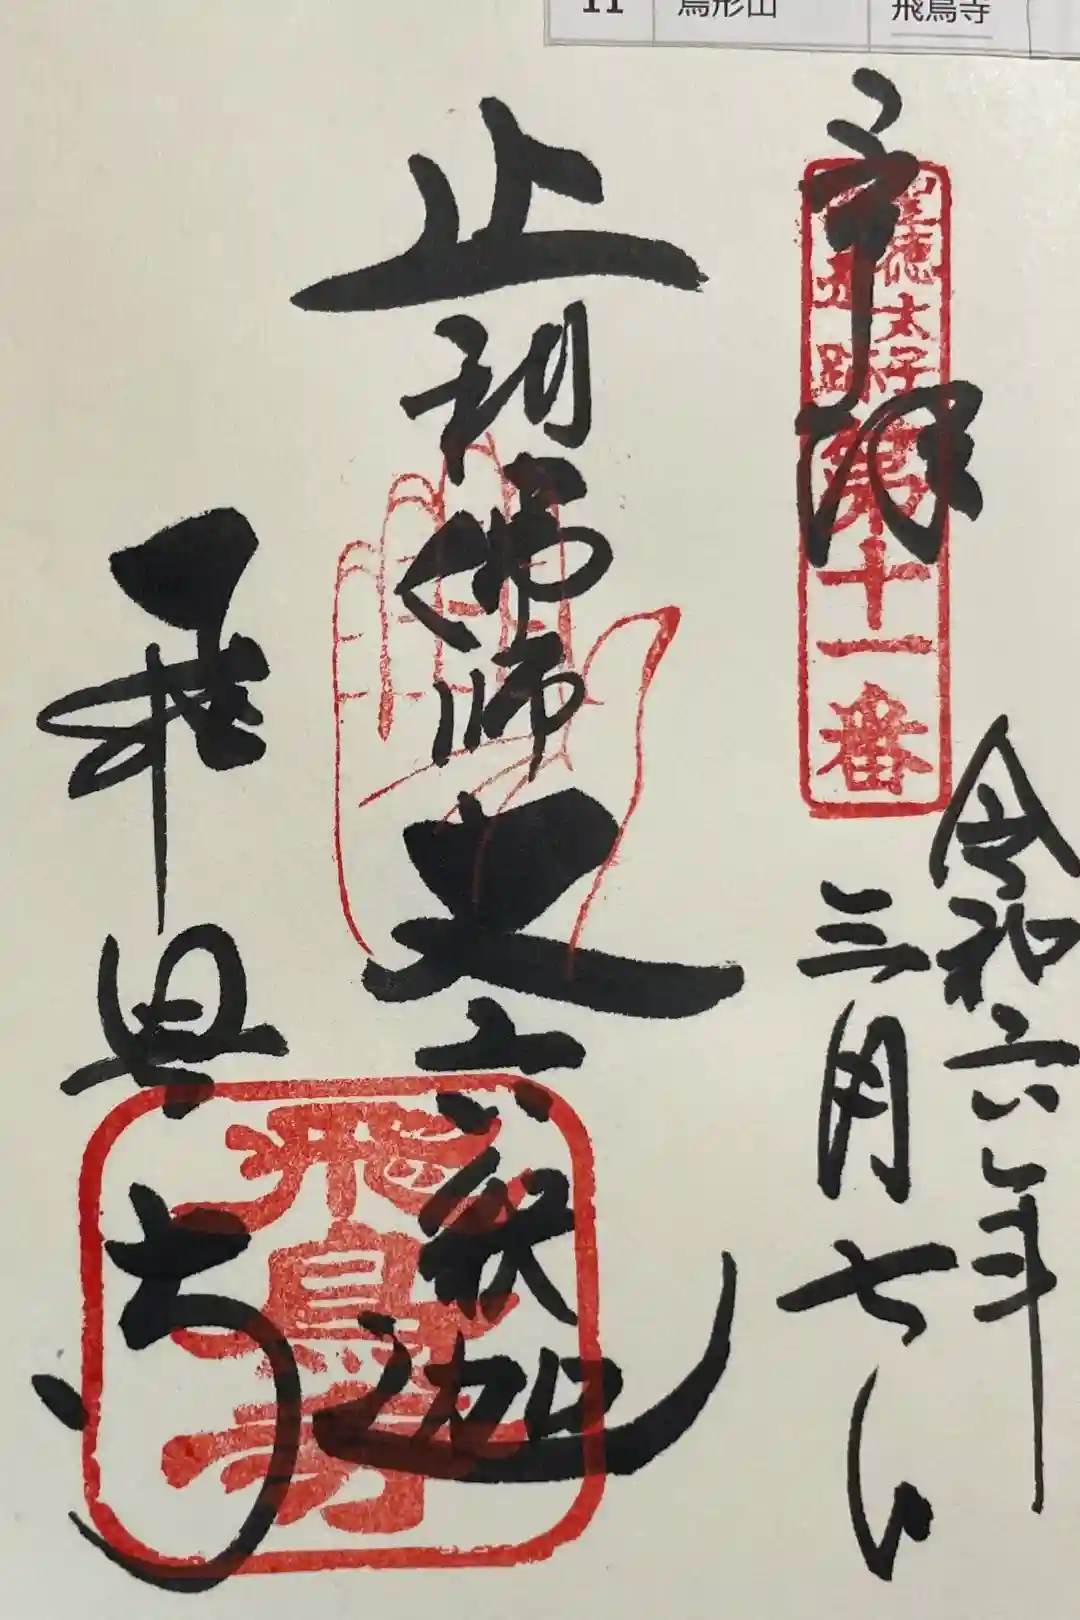 11 鳥形山 飛鳥寺
奉拝
聖徳太子
遺跡
第十一番
令和六年
三月七日
止利佛師之
丈六釈迦
飛鳥寺
飛鳥寺